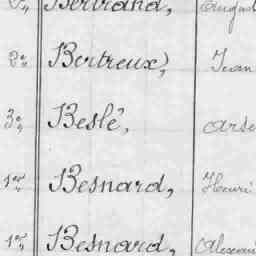 2e, Bertrand, August
2e, Bertreux, Jean
3e, Beslé, Arsè
1er, Besnard, Henri
1er, Besnard, Alexan